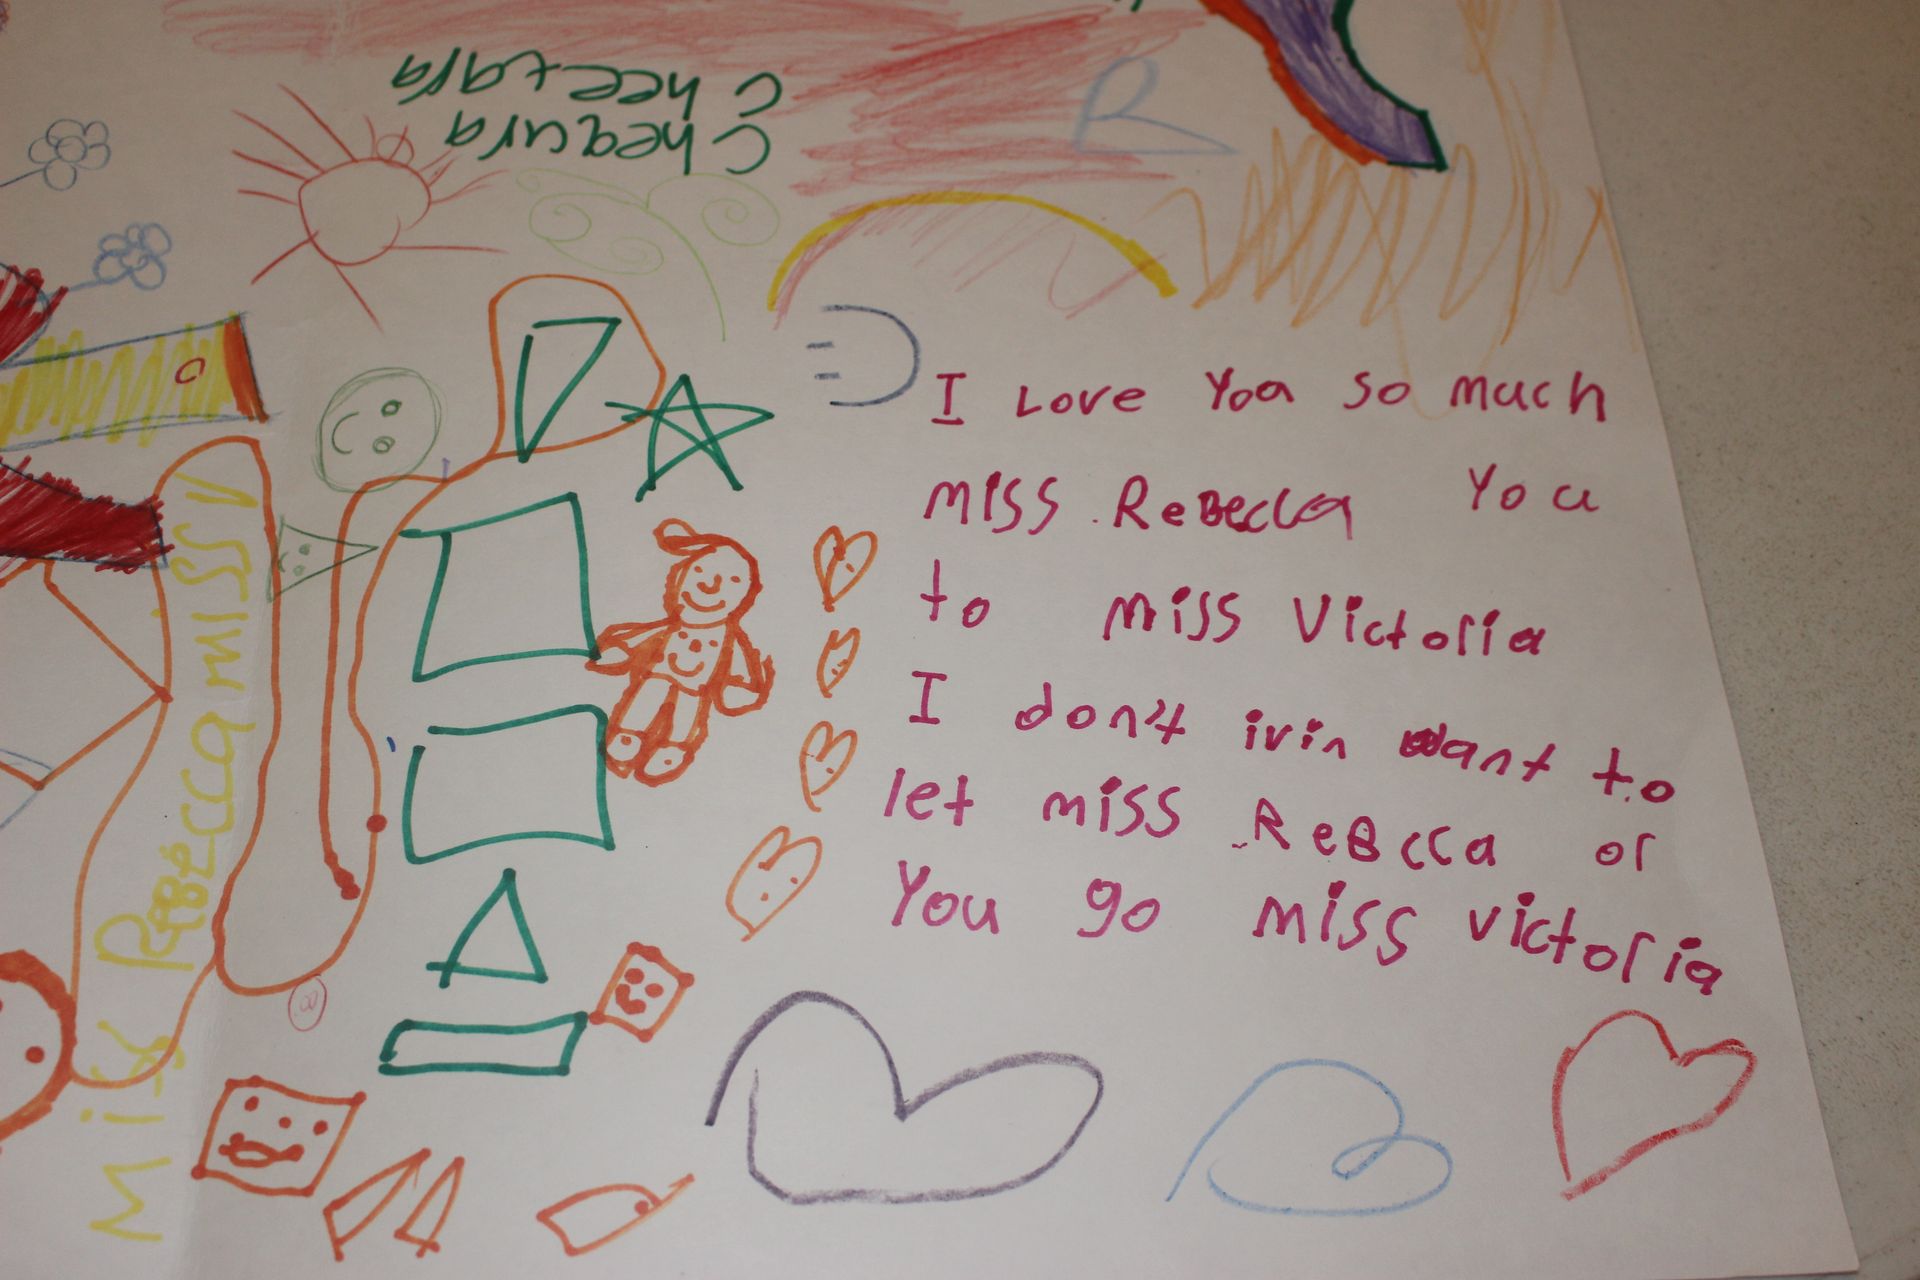 Cheetara
Chequra
I Love You so much
miss Rebecca You
to miss Victoria
I don't irin want to
let miss ReBcca or
You go miss victoria
Miss Rebecca miss V
R